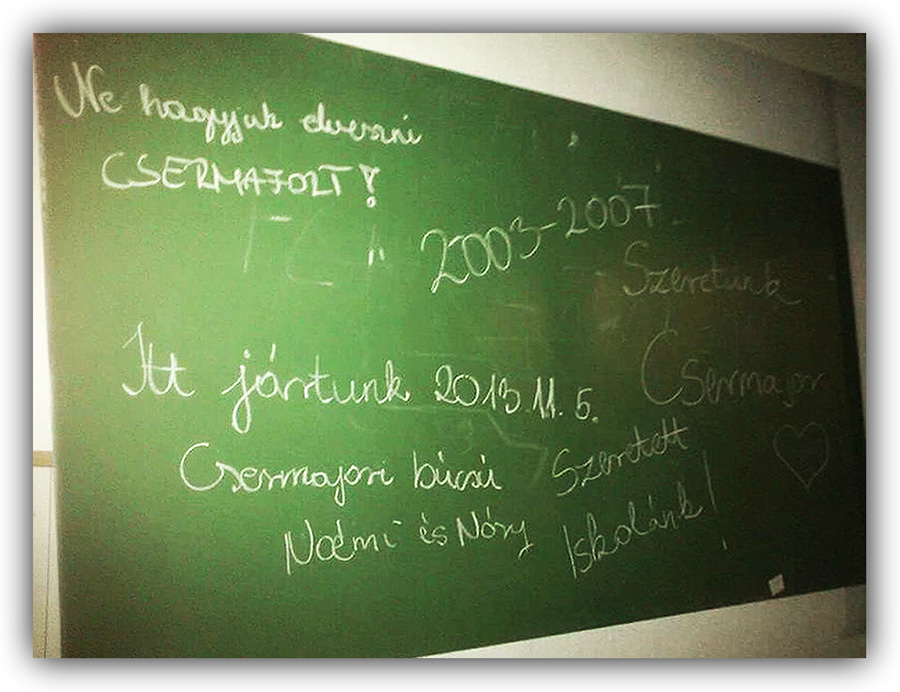 Ne hagyjuk elveszni
CSERMAJORT!
2003-2007
Szeretünk
Csermajor
Itt jártunk 2013.11.5.
Csermajori búcsú
Noémi és Nóry
Szeretett
Iskolánk!